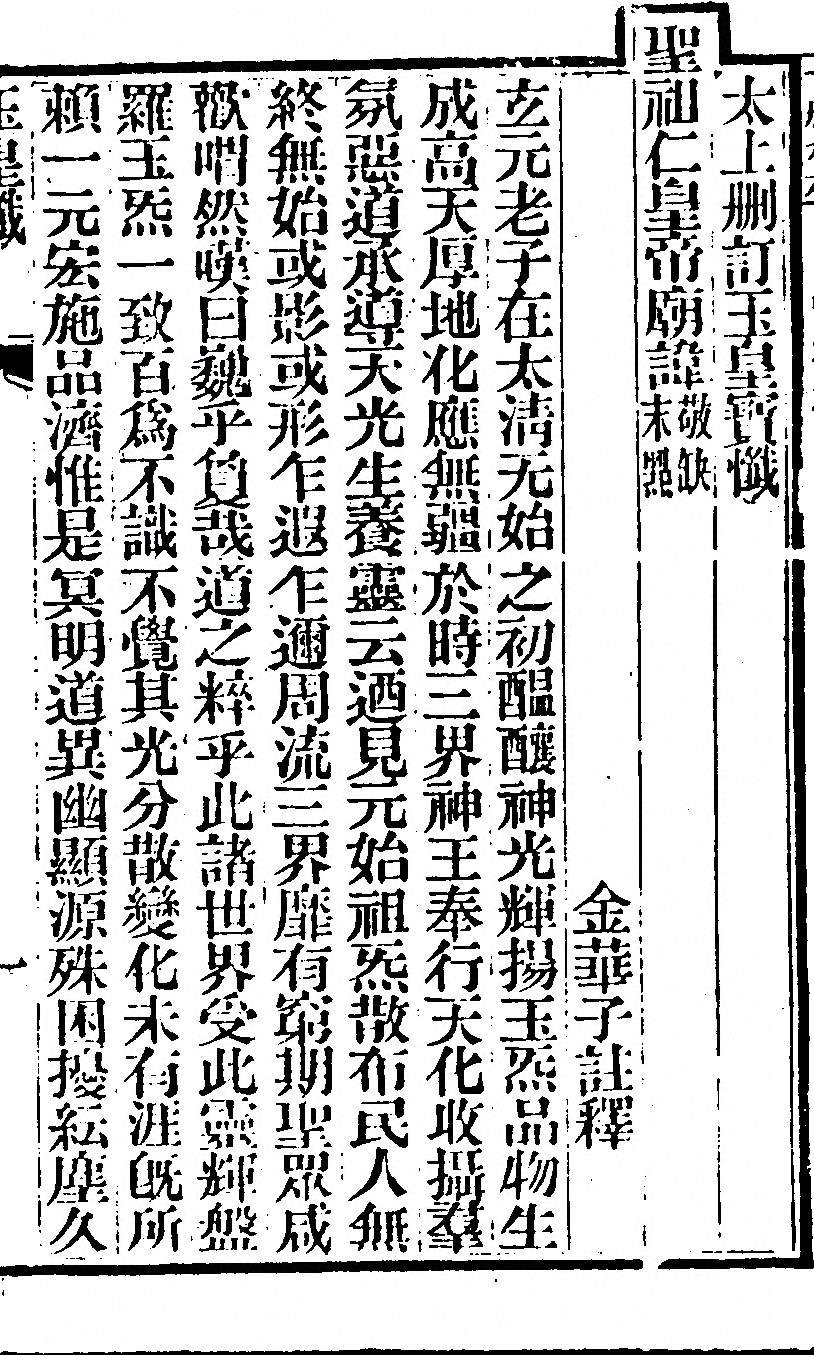 太上刪訂玉皇寶懺
聖祖仁皇帝廟諱敬缺末㸃
金華子註釋
玄元老子在太淸无始之初醖釀神光輝揚玉炁品物生
成高天厚地化應無疆於時三界神王奉行天化收攝羣
氛惡道承遵天光生養靈云迺見元始祖炁散布民人無
終無始或影或形乍遐乍邇周流三界靡有窮期聖眾咸
歡喟然嘆曰巍乎負哉道之粹乎此諸世界受此靈輝盤
羅玉炁一致百爲不識不覺其光分散變化未有涯旣所
賴一元宏施品濟惟是冥明道異幽顯源殊困擾紜塵久
玉皇懺
一